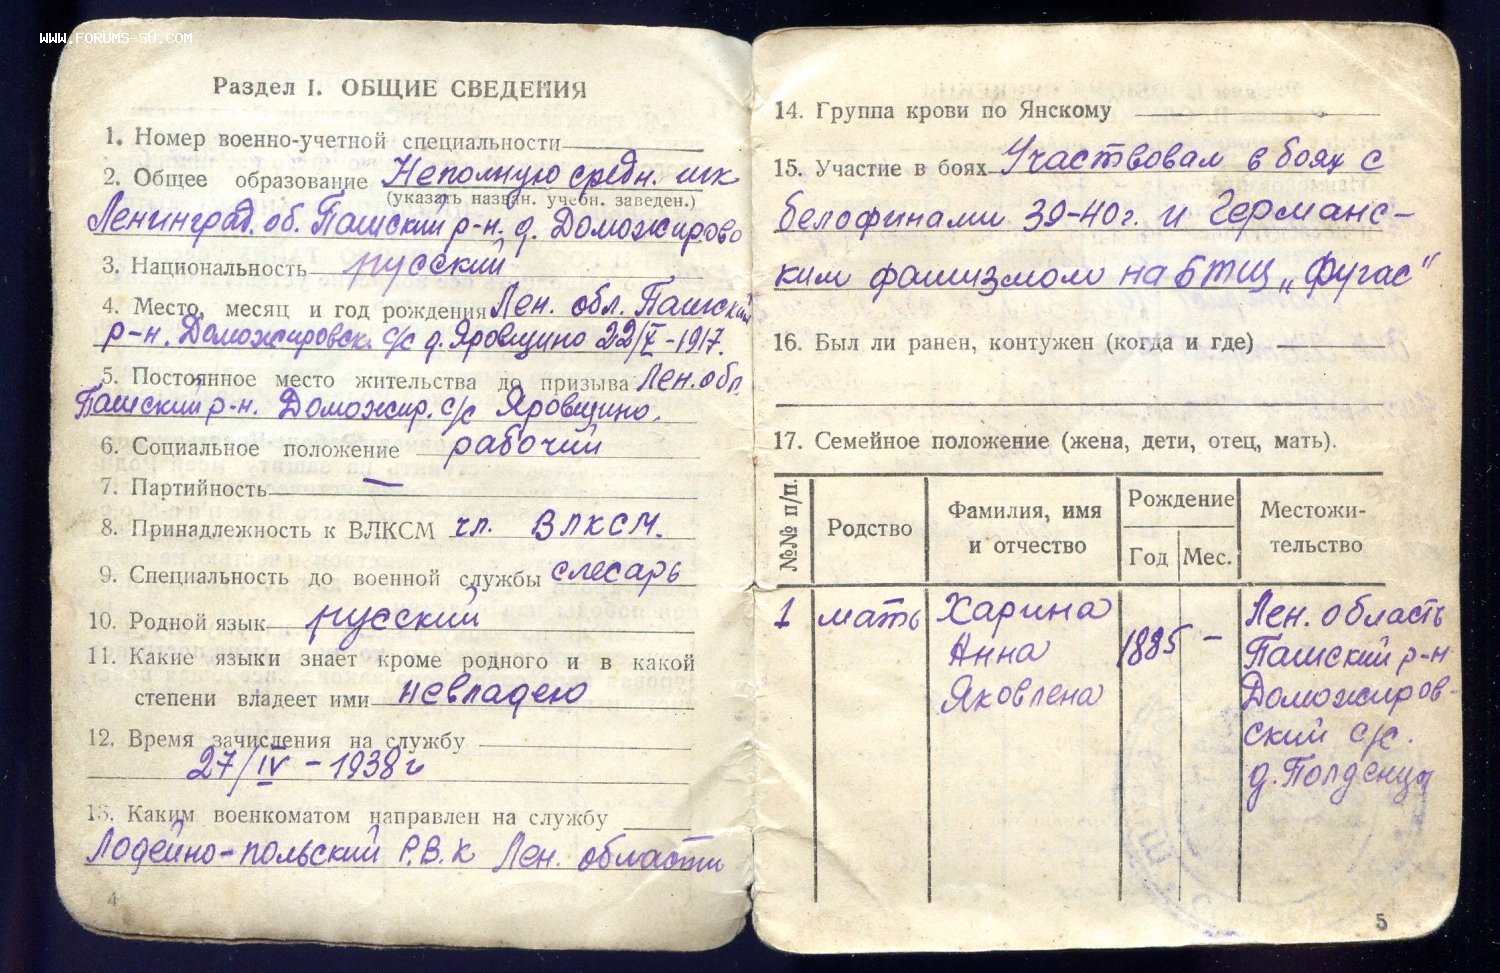 WWW.FORUMS-SU.COM
Раздел I. ОБЩИЕ СВЕДЕНИЯ
1. Номер военно-учетной специальности
2. Общее образование Неполную средн. шк
(указать назван. учебн. заведен.)
Ленинград. об. Пашский р-н. д. Доможирово
3. Национальность русский
4. Место, месяц и год рождения Лен. обл. Пашский
р-н. Доможировск. с/с д. Яровщино 22/V-1917.
5. Постоянное место жительства до призыва Лен. обл.
Пашский р-н. Доможир. с/с Яровщино.
6. Социальное положение рабочий
7. Партийность —
8. Принадлежность к ВЛКСМ чл. ВЛКСМ.
9. Специальность до военной службы слесарь
10. Родной язык русский
11. Какие языки знает кроме родного и в какой
степени владеет ими невладею
12. Время зачисления на службу
27/IV-1938г
13. Каким военкоматом направлен на службу
Лодейно-польский Р.В.К Лен. области
4
14. Группа крови по Янскому
15. Участие в боях Участвовал в боях с
белофинами 39-40г. и Германс-
ким фашизмом на БТЩ „Фугас“
16. Был ли ранен, контужен (когда и где)
17. Семейное положение (жена, дети, отец, мать).
№№ п/п. Родство Фамилия, имя и отчество Рождение Год Мес. Местожи-
тельство
1 мать Харина 1885 — Лен. область
Анна Пашский р-н
Яковлена Доможиров-
ский с/с.
д. Полденца
5